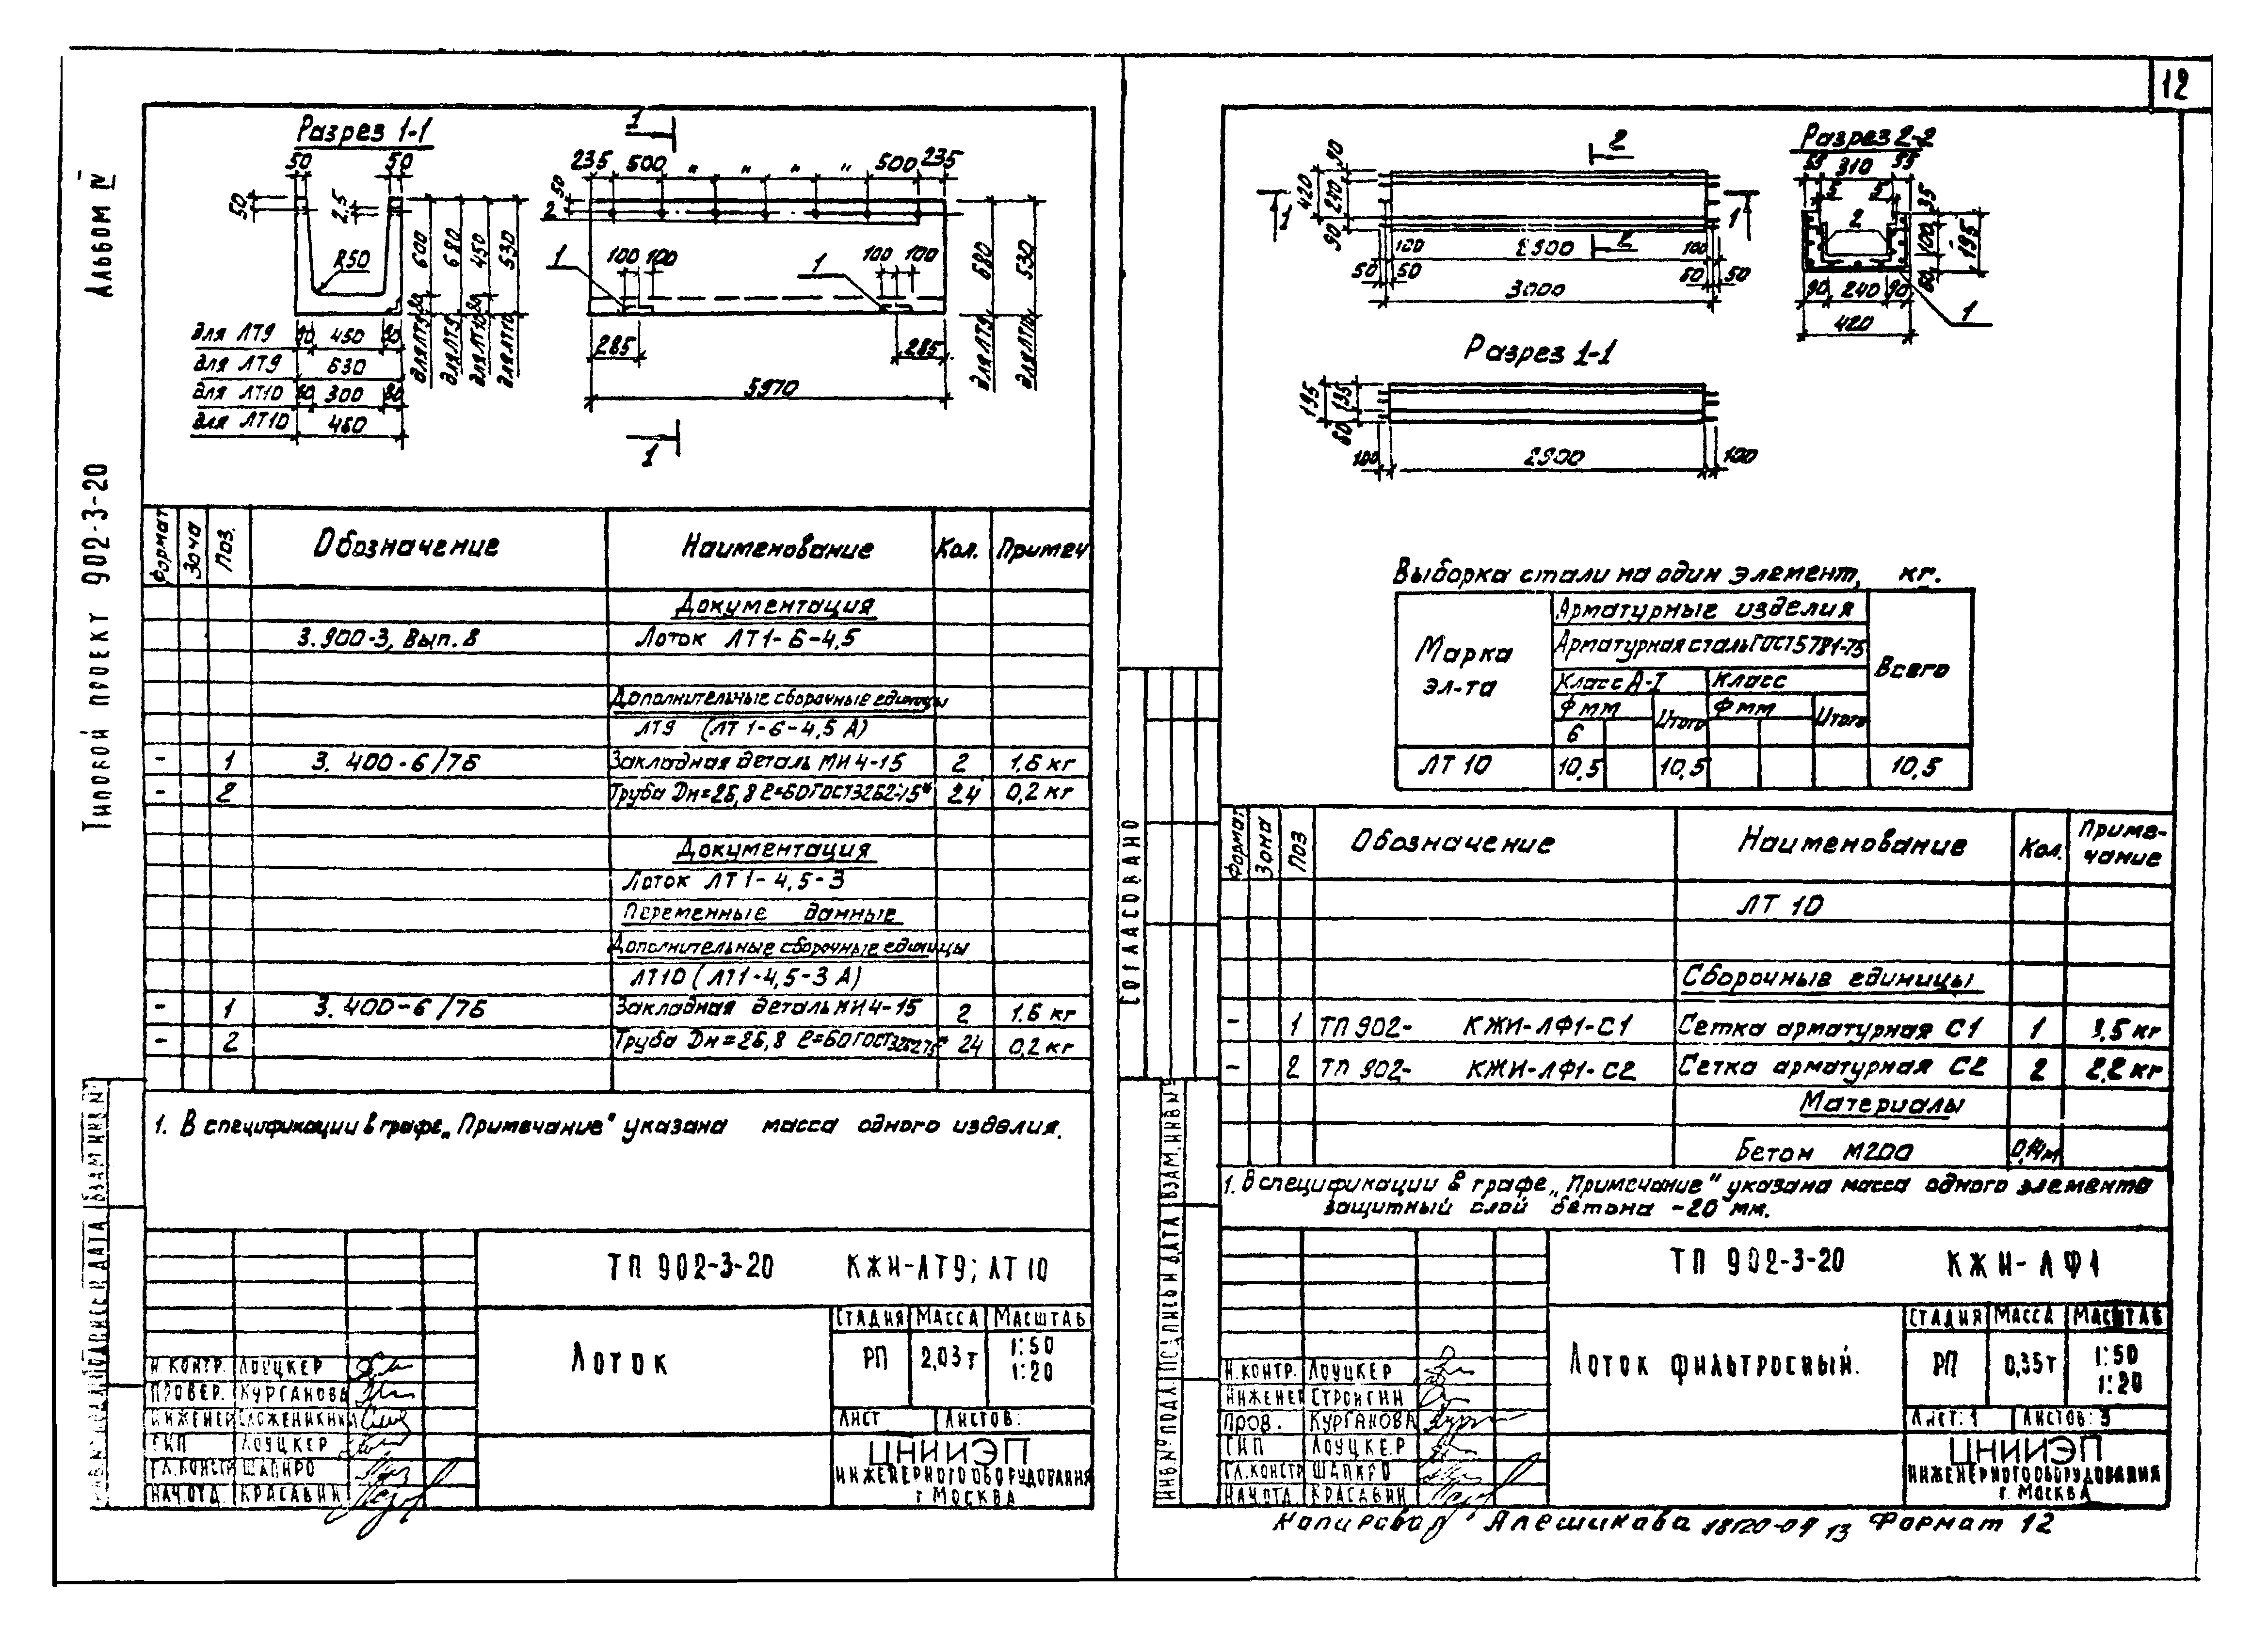 12
Альбом IV
Типовой проект 902-3-20
Разрез 1-1
50 50
50
2,5
R50
600
680
450
530
80
80
для ЛТ9
для ЛТ9
для ЛТ10
для ЛТ10
для ЛТ9 90 450 90
для ЛТ9 630
для ЛТ10 80 300 80
для ЛТ10 460
1
235 500 " " " " 500 235
50
2
1 100 100 1 100 100
680
530
285 285
для ЛТ9
для ЛТ10
5970
1
Формат Зона Поз. Обозначение Наименование Кол. Примеч
Документация
3.900-3, Вып. 8 Лоток ЛТ1-6-4,5
Дополнительные сборочные единицы
ЛТ9 (ЛТ 1-6-4,5 А)
- 1 3. 400-6/76 Закладная деталь МИ 4-15 2 1,6 кг
- 2 Труба Dн=26,8 ℓ=60 ГОСТ3262-75* 24 0,2 кг
Документация
Лоток ЛТ 1-4,5-3
Переменные данные
Дополнительные сборочные единицы
ЛТ10 (ЛТ1-4,5-3 А)
- 1 3. 400-6/76 Закладная деталь МИ 4-15 2 1.6 кг
- 2 Труба Dн=26,8 ℓ=60 ГОСТ3262-75* 24 0,2 кг
1. В спецификации в графе „Примечание" указана масса одного изделия.
ТП 902-3-20 КЖИ-ЛТ9; ЛТ10
Лоток
Стадия Масса Масштаб
РП 2,03т 1:50
1:20
Лист Листов:
ЦНИИЭП
инженерного оборудования
г Москва
Н.контр. Лоуцкер
Провер. Курганова
Инженер
ГИП Лоуцкер
Гл.констр Шапиро
Нач.отд. Красавин
Взам инв №
Подпись и дата
Инв № подл
2
90
420 240
90
1 1
100 2900 2 100
50 50 50 50
3000
Разрез 2-2
55 310 55
5 5
35
2
100
195
60
90 240 90
1
420
Разрез 1-1
195 135
60
100 2900 100
Выборка стали на один элемент, кг.
Марка эл-та
Арматурные изделия
Арматурная сталь ГОСТ5781-75
Всего
Класс А-I Класс
Ф мм Итого Ф мм Итого
6
ЛТ 10 10,5 10,5 10,5
Формат Зона Поз Обозначение Наименование Кол. Приме-
чание
ЛТ 10
Сборочные единицы
- 1 ТП 902- КЖИ-ЛФ1-С1 Сетка арматурная С1 1 3,5 кг
- 2 ТП 902- КЖИ-ЛФ1-С2 Сетка арматурная С2 2 2,2 кг
Материалы
Бетон М200 0,14м
1. В спецификации в графе „Примечание" указана масса одного элемента
защитный слой бетона -20 мм.
Согласовано
Взам. инв №
Подпись и дата
Инв № подл.
ТП 902-3-20 КЖИ-ЛФ1
Лоток фильтросный.
Стадия Масса Масштаб
РП 0,35т 1:50
1:20
Лист: 1 Листов: 3
ЦНИИЭП
инженерного оборудования
г. Москва
Н.контр. Лоуцкер
Инженер Строигин
Пров. Курганова
ГИП Лоуцкер
Гл.констр Шапиро
Нач.отд. Красавин
Копировал Алешикова 18120-04 13 Формат 12